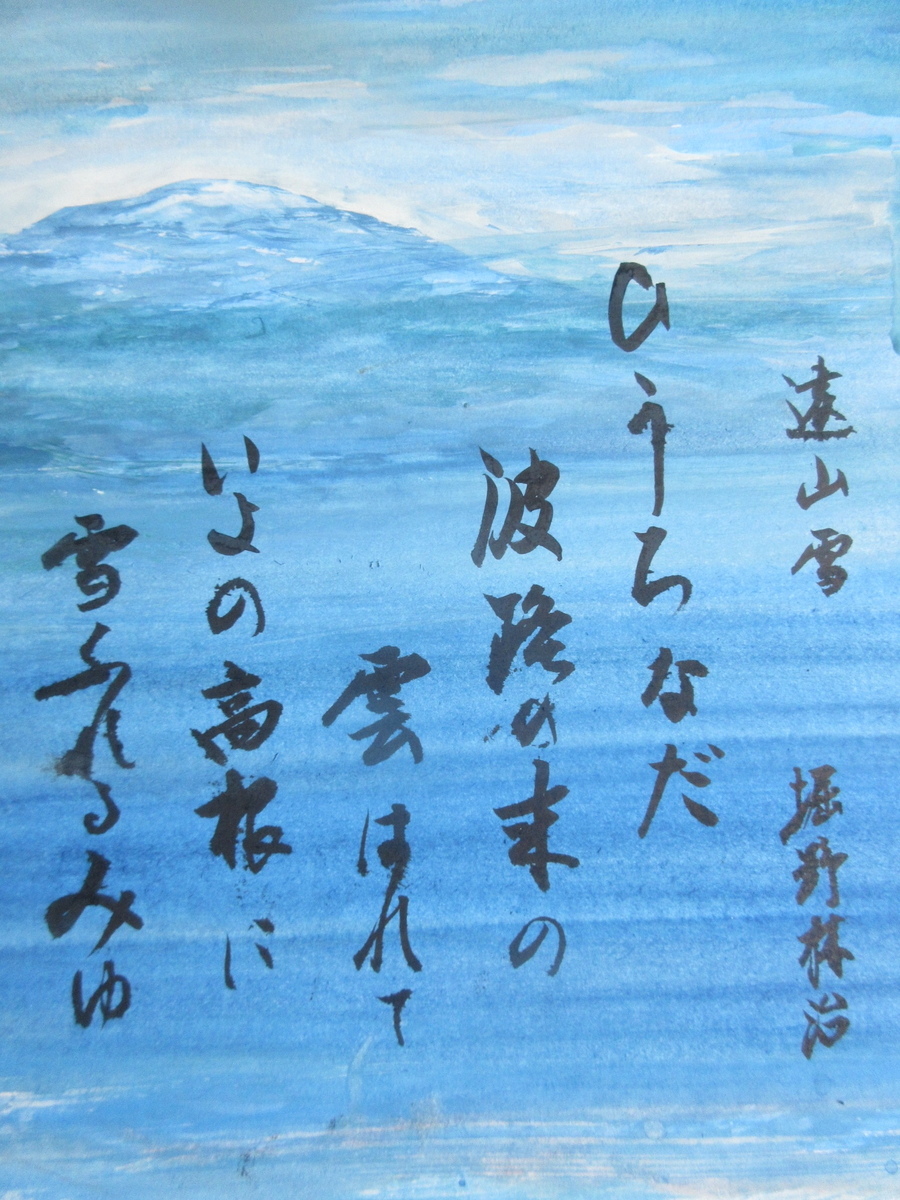 遠山雪 堀野林治
ひうちなだ
波路の末の
雲はれて
いよの高根に
雪ふれるみゆ